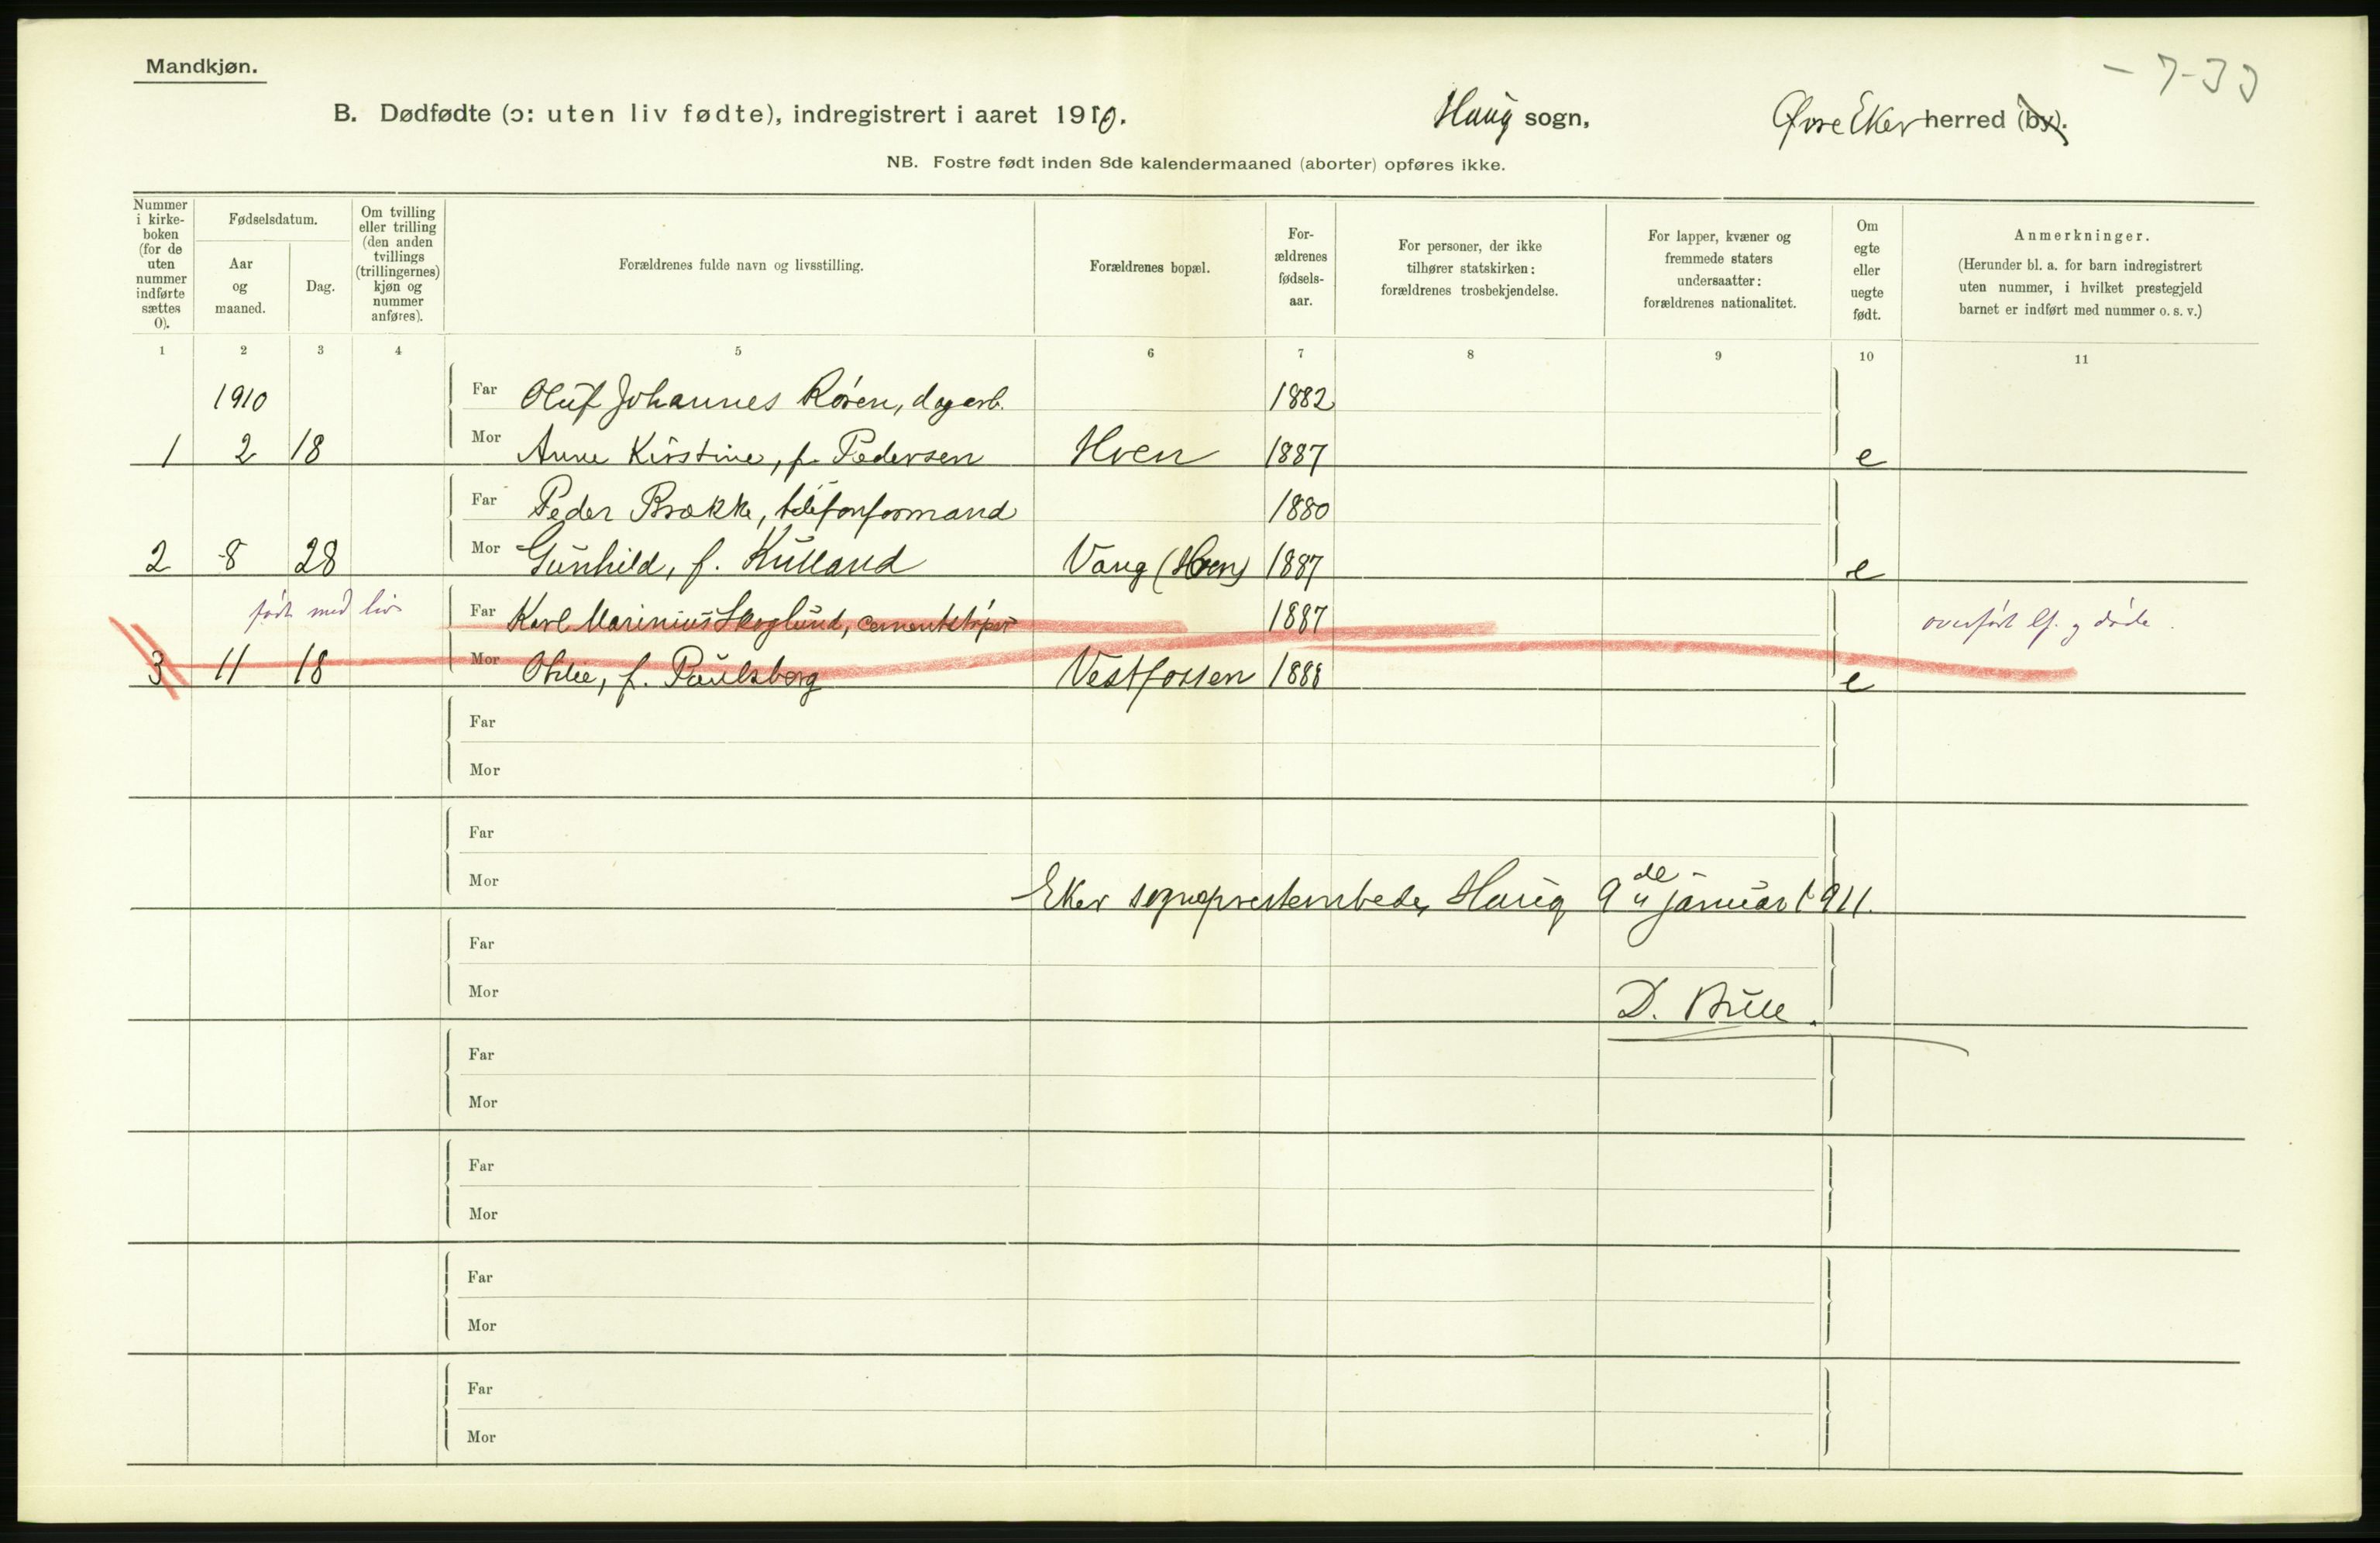 Mandkjøn.
- 7-33
B. Dødfødte (ɔ: uten liv fødte), indregistrert i aaret 1910. Haug sogn, Øvre Eker herred (by).
NB. Fostre født inden 8de kalendermaaned (aborter) opføres ikke.
Nummer i kirke-boken (for de uten nummer indførte sættes 0).
Fødselsdatum.
Aar og maaned.
Dag.
Om tvilling eller trilling (den anden tvillings (trillingernes) kjøn og nummer anføres).
Forældrenes fulde navn og livsstilling.
Forældrenes bopæl.
For-ældrenes fødsels-aar.
For personer, der ikke tilhører statskirken: forældrenes trosbekjendelse.
For lapper, kvæner og fremmede staters undersaatter: forældrenes nationalitet.
Om egte eller uegte født.
Anmerkninger.
(Herunder bl. a. for barn indregistrert uten nummer, i hvilket prestegjeld barnet er indført med nummer o. s. v.)
1 2 3 4 5 6 7 8 9 10 11
1910 Far Oluf Johannes Røren, dagarb. 1882
1 2 18 Mor Anne Kirstine, f. Pedersen Hven 1887 e
Far Peder Brække, telefonformand 1880
2 8 28 Mor Gunhild, f. Kulland Vang (Hven) 1887 e
født med liv Far Karl Marinius Skoglund, cementstøper 1887 overført lf. og døde.
3 11 18 Mor Otilie, f. Paulsberg Vestfossen 1888 e
Far
Mor
Far
Mor Eker sogneprestembede, Haug 9de januar 1911.
Far
Mor D. Bull.
Far
Mor
Far
Mor
Far
Mor
Far
Mor